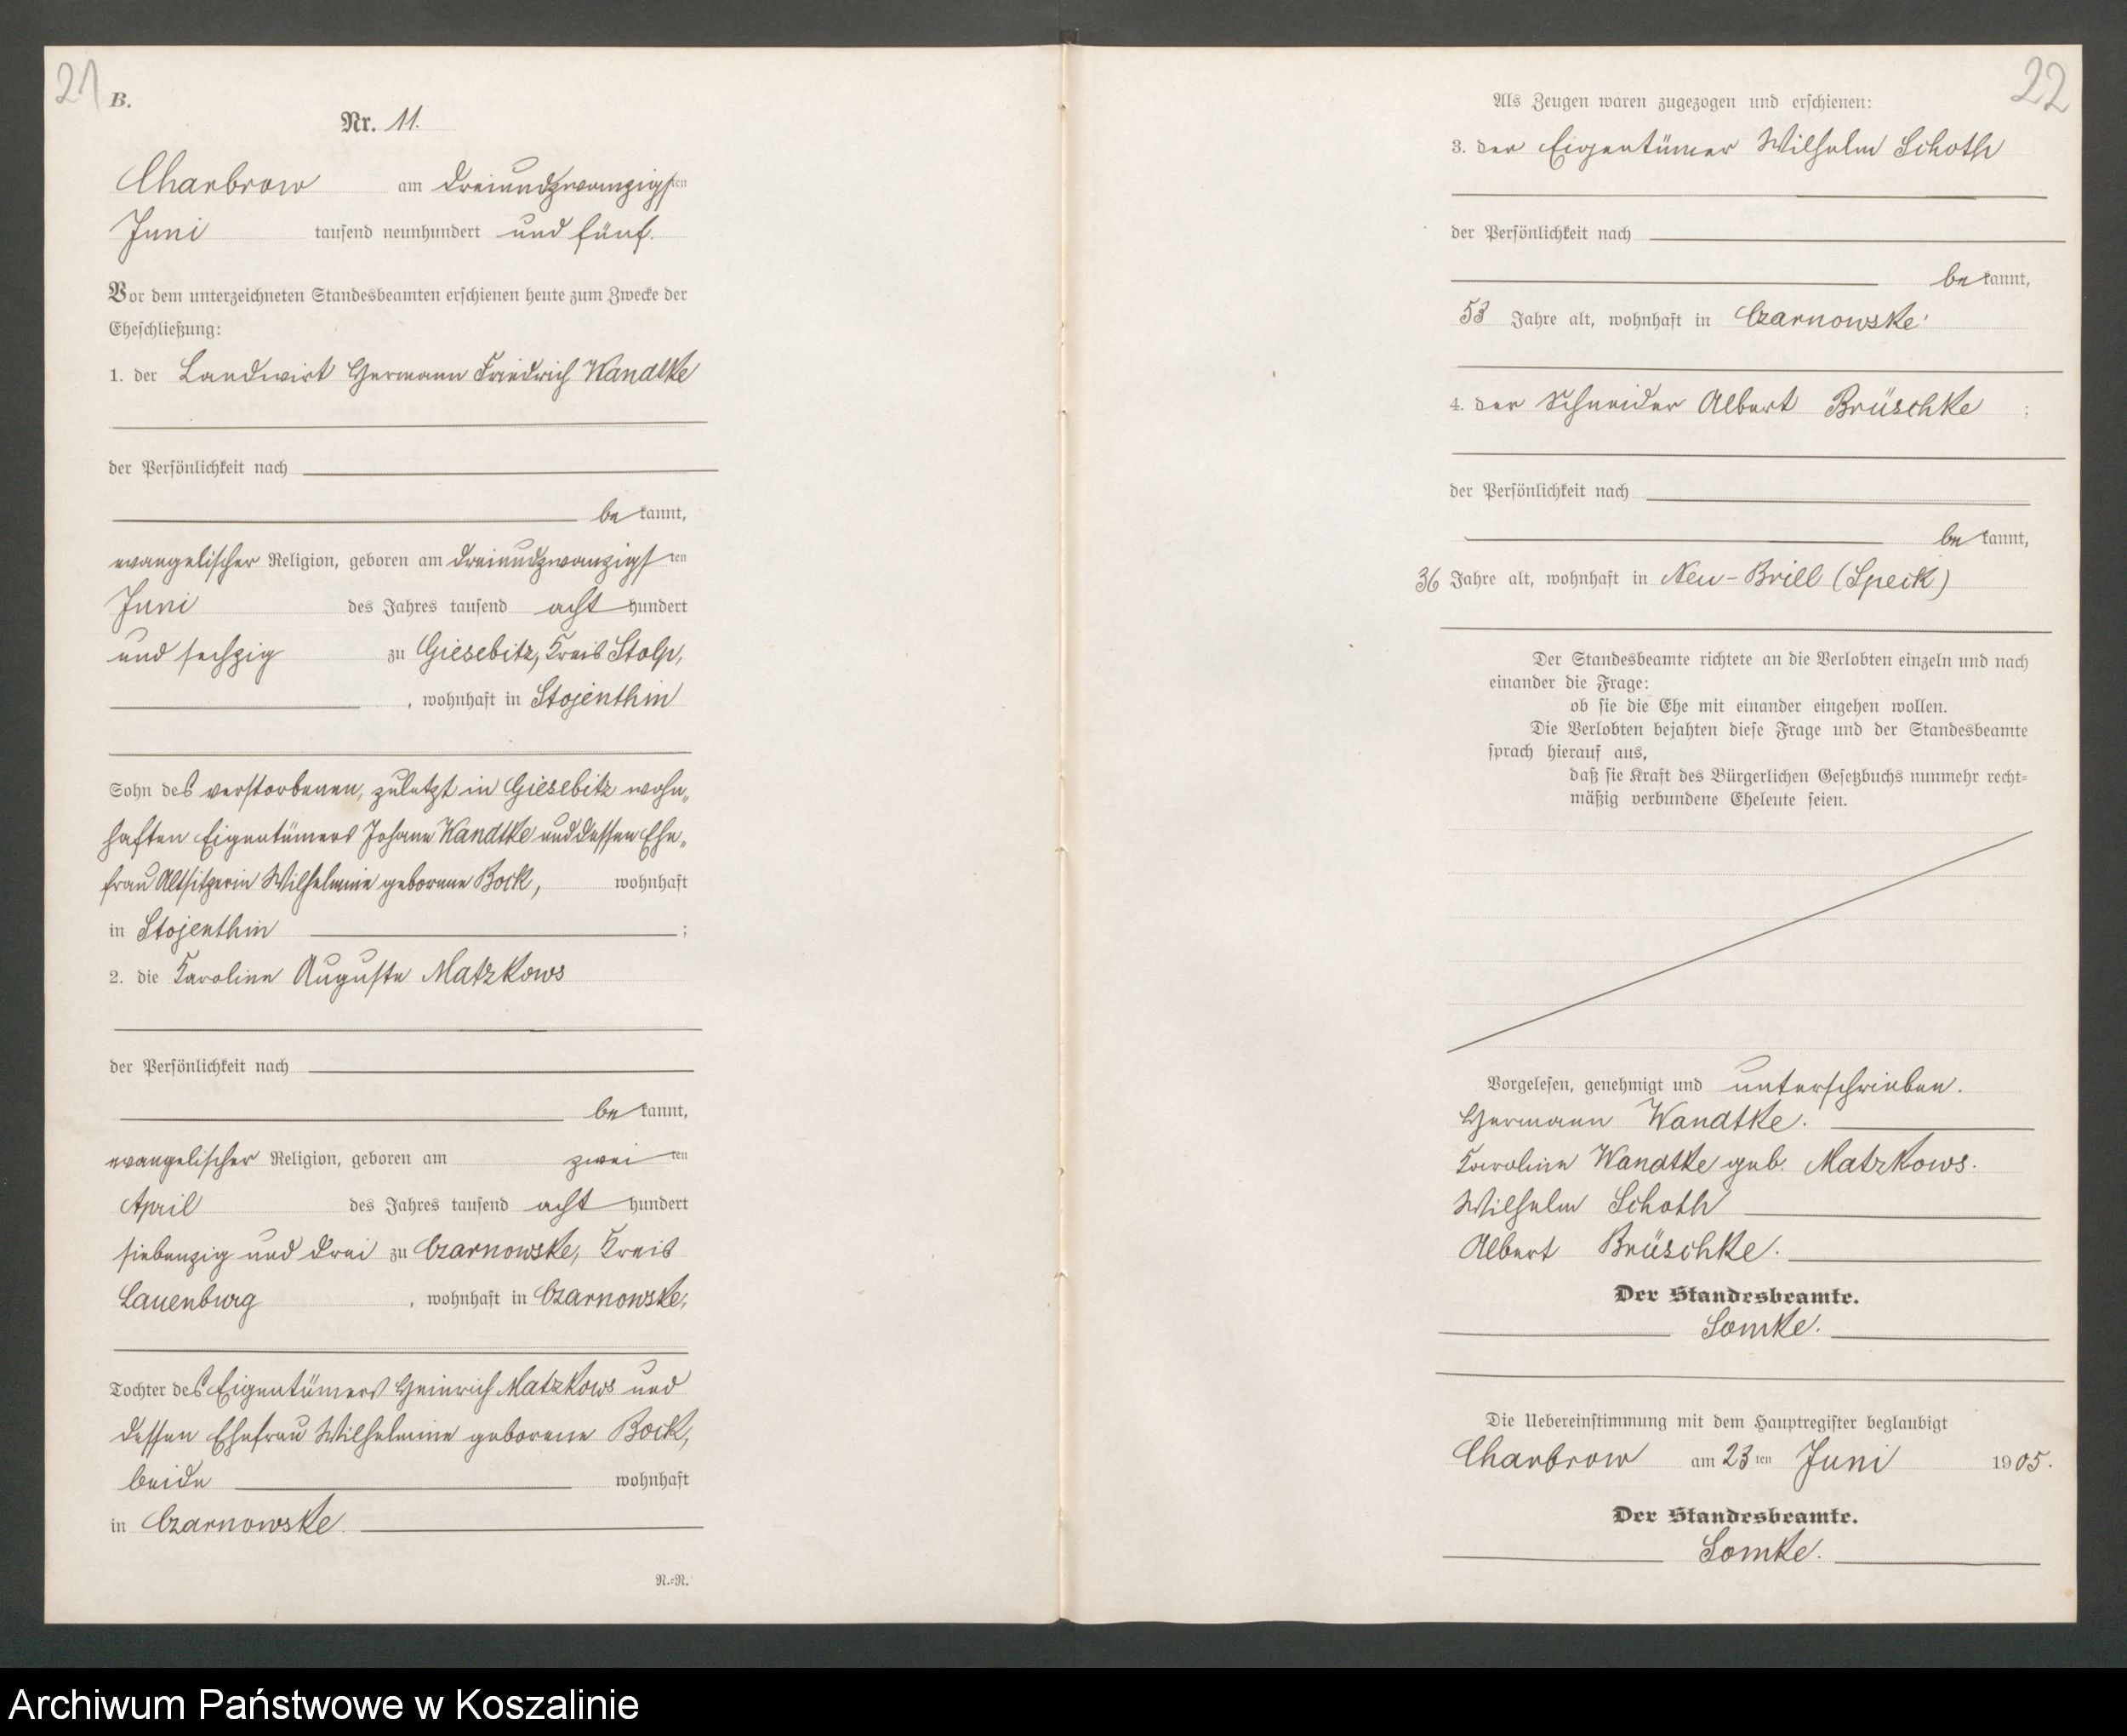 21
B.
Nr. 11.
Charbrow am dreiundzwanzigsten
Juni tausend neunhundert und fünf.
Vor dem unterzeichneten Standesbeamten erschienen heute zum Zwecke der
Eheschließung:
1. der Landwirt Hermann Friedrich Wandtke
der Persönlichkeit nach
bekannt,
evangelischer Religion, geboren am dreiundzwanzigsten
Juni des Jahres tausend acht hundert
und sechzig zu Giesebitz, Kreis Stolp,
, wohnhaft in Stojenthin
Sohn des verstorbenen, zuletzt in Giesebitz wohn„
haften Eigentümers Johann Wandtke und dessen Ehe„
frau Altsitzerin Wilhelmine geborene Bock, wohnhaft
in Stojenthin ;
2. die Karoline Auguste Matzkows
der Persönlichkeit nach
bekannt,
evangelischer Religion, geboren am zweiten
April des Jahres tausend acht hundert
siebenzig und drei zu Czarnowske, Kreis
Lauenburg , wohnhaft in Czarnowske,
Tochter des Eigentümers Heinrich Matzkows und
dessen Ehefrau Wilhelmine geborene Bock,
beide wohnhaft
in Czarnowske.
N.=N.
22
Als Zeugen waren zugezogen und erschienen:
3. der Eigentümer Wilhelm Schoth
der Persönlichkeit nach
bekannt,
53 Jahre alt, wohnhaft in Czarnowske
4. der Schneider Albert Brüschke ;
der Persönlichkeit nach
bekannt,
36 Jahre alt, wohnhaft in Neu-Brill (Speck)
Der Standesbeamte richtete an die Verlobten einzeln und nach
einander die Frage:
ob sie die Ehe mit einander eingehen wollen.
Die Verlobten bejahten diese Frage und der Standesbeamte
sprach hierauf aus,
daß sie kraft des Bürgerlichen Gesetzbuchs nunmehr recht=
mäßig verbundene Eheleute seien.
Vorgelesen, genehmigt und unterschrieben.
Hermann Wandtke.
Karoline Wandtke geb. Matzkows.
Wilhelm Schoth
Albert Brüschke.
Der Standesbeamte.
Somke.
Die Uebereinstimmung mit dem Hauptregister beglaubigt
Charbrow am 23ten Juni 1905.
Der Standesbeamte.
Somke.
Archiwum Państwowe w Koszalinie